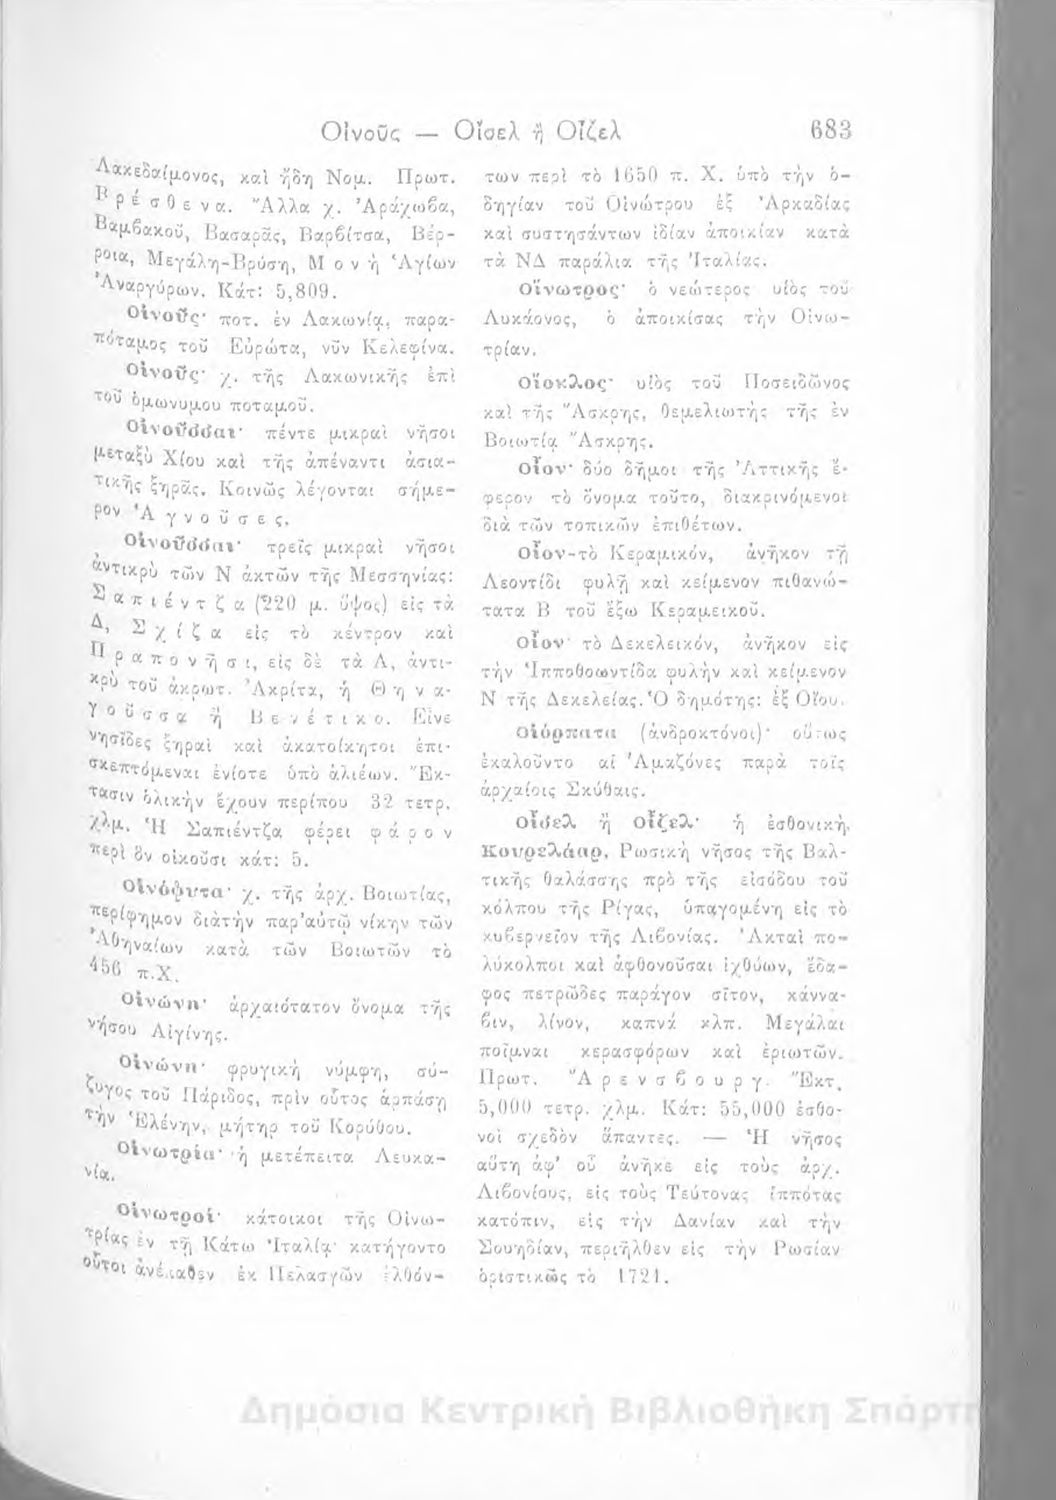 Οἰνοῦς — Οἶσελ ἢ Οἶζελ 683
Λακεδαίμονος, καὶ ἤδη Νομ. Πρωτ.
Βρέσθενα. Ἄλλα χ. Ἀράχωβα,
Βαμβακοῦ, Βασαρᾶς, Βαρβίτσα, Βέρ-
ροια, Μεγάλη-Βρύση, Μονὴ Ἁγίων
Ἀναργύρων. Κάτ: 5,809.
Οἰνοῦς· ποτ. ἐν Λακωνίᾳ, παρα-
πόταμος τοῦ Εὐρώτα, νῦν Κελεφίνα.
Οἰνοῦς· χ. τῆς Λακωνικῆς ἐπὶ
τοῦ ὁμωνύμου ποταμοῦ.
Οἰνοῦσσαι· πέντε μικραὶ νῆσοι
μεταξὺ Χίου καὶ τῆς ἀπέναντι ἀσια-
τικῆς ξηρᾶς. Κοινῶς λέγονται σήμε-
ρον Ἀγνοῦσες.
Οἰνοῦσσαι· τρεῖς μικραὶ νῆσοι
ἀντικρὺ τῶν Ν ἀκτῶν τῆς Μεσσηνίας:
Σαπιέντζα (220 μ. ὕψος) εἰς τὰ
Δ, Σχίζα εἰς τὸ κέντρον καὶ
Πραπονῆσι, εἰς δὲ τὰ Α, ἀντι-
κρὺ τοῦ ἀκρωτ. Ἀκρίτα, ἡ Θηνα-
γοῦσσα ἢ Βενέτικο. Εἶνε
νησῖδες ξηραὶ καὶ ἀκατοίκητοι ἐπι-
σκεπτόμεναι ἐνίοτε ὑπὸ ἁλιέων. Ἔκ-
τασιν ὁλικὴν ἔχουν περίπου 32 τετρ.
χλμ. Ἡ Σαπιέντζα φέρει φάρον
περὶ ὃν οἰκοῦσι κάτ: 5.
Οἰνόφυτα· χ. τῆς ἀρχ. Βοιωτίας,
περίφημον διὰτὴν παρ'αὐτῷ νίκην τῶν
Ἀθηναίων κατὰ τῶν Βοιωτῶν τὸ
456 π.Χ.
Οἰνώνη· ἀρχαιότατον ὄνομα τῆς
νήσου Αἰγίνης.
Οἰνώνη· φρυγικὴ νύμφη, σύ-
ζυγος τοῦ Πάριδος, πρὶν οὗτος ἁρπάσῃ
τὴν Ἑλένην, μήτηρ τοῦ Κορύθου.
Οἰνωτρία· ἡ μετέπειτα Λευκα-
νία.
Οἰνωτροί· κάτοικοι τῆς Οἰνω-
τρίας ἐν τῇ Κάτω Ἰταλίᾳ· κατήγοντο
οὗτοι ἀνέκαθεν ἐκ Πελασγῶν ἐλθόν-
των περὶ τὸ 1650 π. Χ. ὑπὸ τὴν ὁ-
δηγίαν τοῦ Οἰνώτρου ἐξ Ἀρκαδίας
καὶ συστησάντων ἰδίαν ἀποικίαν κατὰ
τὰ ΝΔ παράλια τῆς Ἰταλίας.
Οἴνωτρος· ὁ νεώτερος υἱὸς τοῦ
Λυκάονος, ὁ ἀποικίσας τὴν Οἰνω-
τρίαν.
Οἴοκλος· υἱὸς τοῦ Ποσειδῶνος
καὶ τῆς Ἄσκρης, θεμελιωτὴς τῆς ἐν
Βοιωτίᾳ Ἄσκρης.
Οἶον· δύο δῆμοι τῆς Ἀττικῆς ἔ-
φερον τὸ ὄνομα τοῦτο, διακρινόμενοι
διὰ τῶν τοπικῶν ἐπιθέτων.
Οἶον-τὸ Κεραμικόν, ἀνῆκον τῇ
Λεοντίδι φυλῇ καὶ κείμενον πιθανώ-
τατα Β τοῦ ἔξω Κεραμεικοῦ.
Οἶον· τὸ Δεκελεικόν, ἀνῆκον εἰς
τὴν Ἱπποθοωντίδα φυλὴν καὶ κείμενον
Ν τῆς Δεκελείας. Ὁ δημότης: ἐξ Οἴου.
Οἰόρπατα (ἀνδροκτόνοι)· οὕτως
ἐκαλοῦντο αἱ Ἀμαζόνες παρὰ τοῖς
ἀρχαίοις Σκύθαις.
Οἶσελ ἢ Οἶζελ· ἡ ἐσθονικὴ
Κουρελάαρ, Ρωσικὴ νῆσος τῆς Βαλ-
τικῆς θαλάσσης πρὸ τῆς εἰσόδου τοῦ
κόλπου τῆς Ρίγας, ὑπαγομένη εἰς τὸ
κυβερνεῖον τῆς Λιβονίας. Ἀκταὶ πο-
λύκολποι καὶ ἀφθονοῦσαι ἰχθύων, ἔδα-
φος πετρῶδες παράγον σῖτον, κάννα-
βιν, λίνον, καπνὰ κλπ. Μεγάλαι
ποῖμναι κερασφόρων καὶ ἐριωτῶν.
Πρωτ. Ἄρενσβουργ. Ἔκτ.
5,000 τετρ. χλμ. Κάτ: 55,000 ἐσθο-
νοὶ σχεδὸν ἅπαντες. — Ἡ νῆσος
αὕτη ἀφ' οὗ ἀνῆκε εἰς τοὺς ἀρχ.
Λιβονίους, εἰς τοὺς Τεύτονας ἱππότας
κατόπιν, εἰς τὴν Δανίαν καὶ τὴν
Σουηδίαν, περιῆλθεν εἰς τὴν Ρωσίαν
ὁριστικῶς τὸ 1721.
Δημόσια Κεντρική Βιβλιοθήκη Σπάρτη